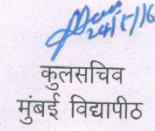 24/5/16
कुलसचिव
मुंबई विद्यापीठ